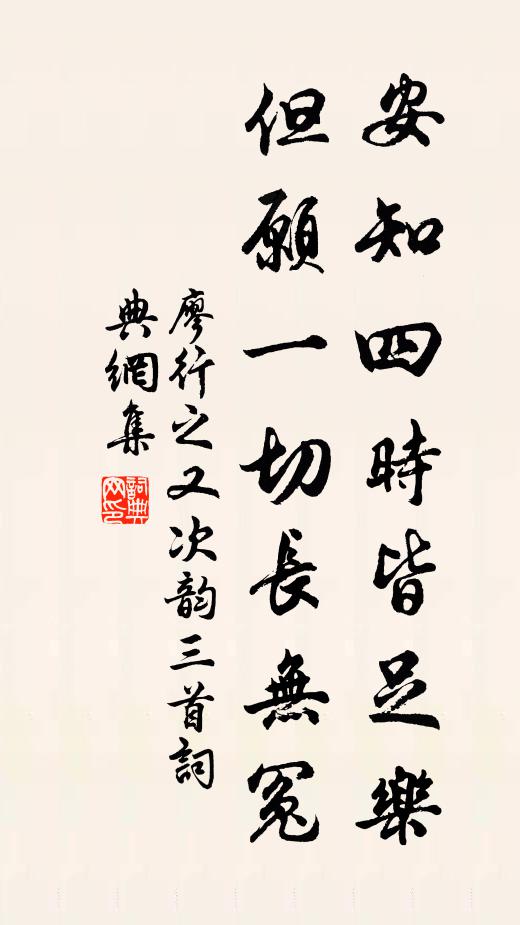 安知四時皆足樂
但願一切長無冤
廖行之又次韵三首詞
典網集
詞典
网印